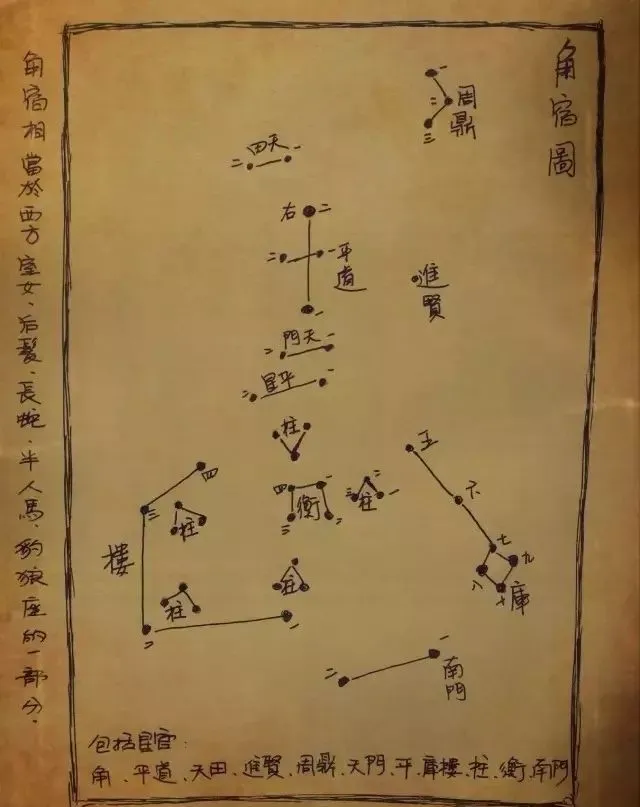 角宿圖
周鼎
一
二
三
天田
一
二
右
二
平道
一
二
一
進賢
天門
一
二
平星
一
二
柱
五
六
七
八
九
十
庫
樓
四
三
二
一
柱
柱
柱
衡
四
三
一
二
柱
二
三
一
南門
一
二
角宿相當於西方室女、后髮、長蛇、半人馬、豹狼座的一部分.
包括星官：
角、平道、天田、進賢、周鼎、天門、平、庫樓、柱、衡、南門